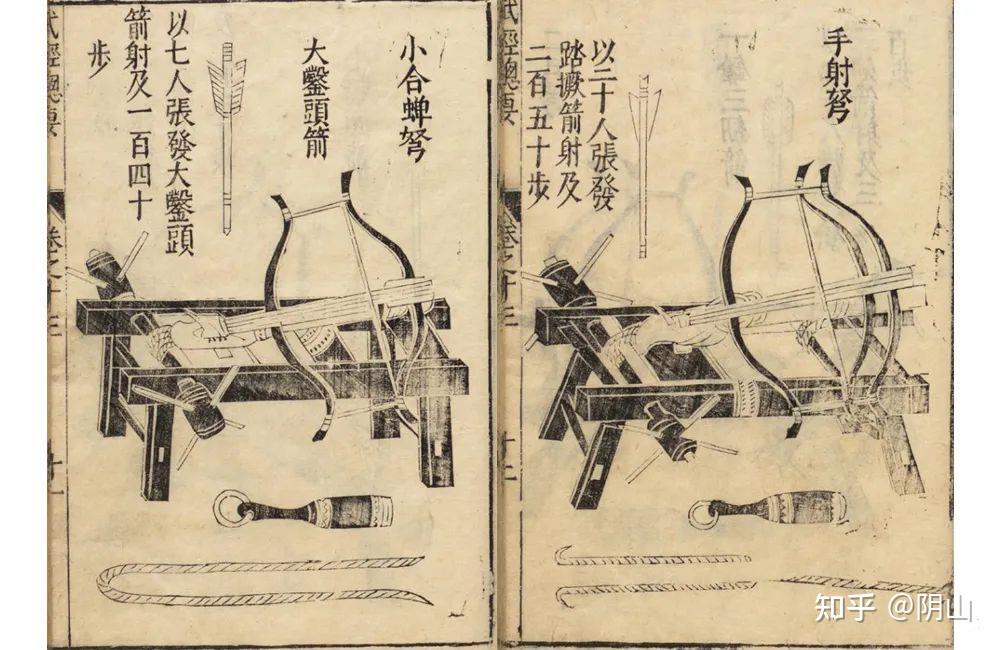 手射弩
以二十人張發
踏橛箭射及
二百五十步
武經總要
卷之十三
小合蟬弩
大鑿頭箭
以七人張發大鑿頭
箭射及一百四十
步
武經總要
卷之十三
知乎 @阴山